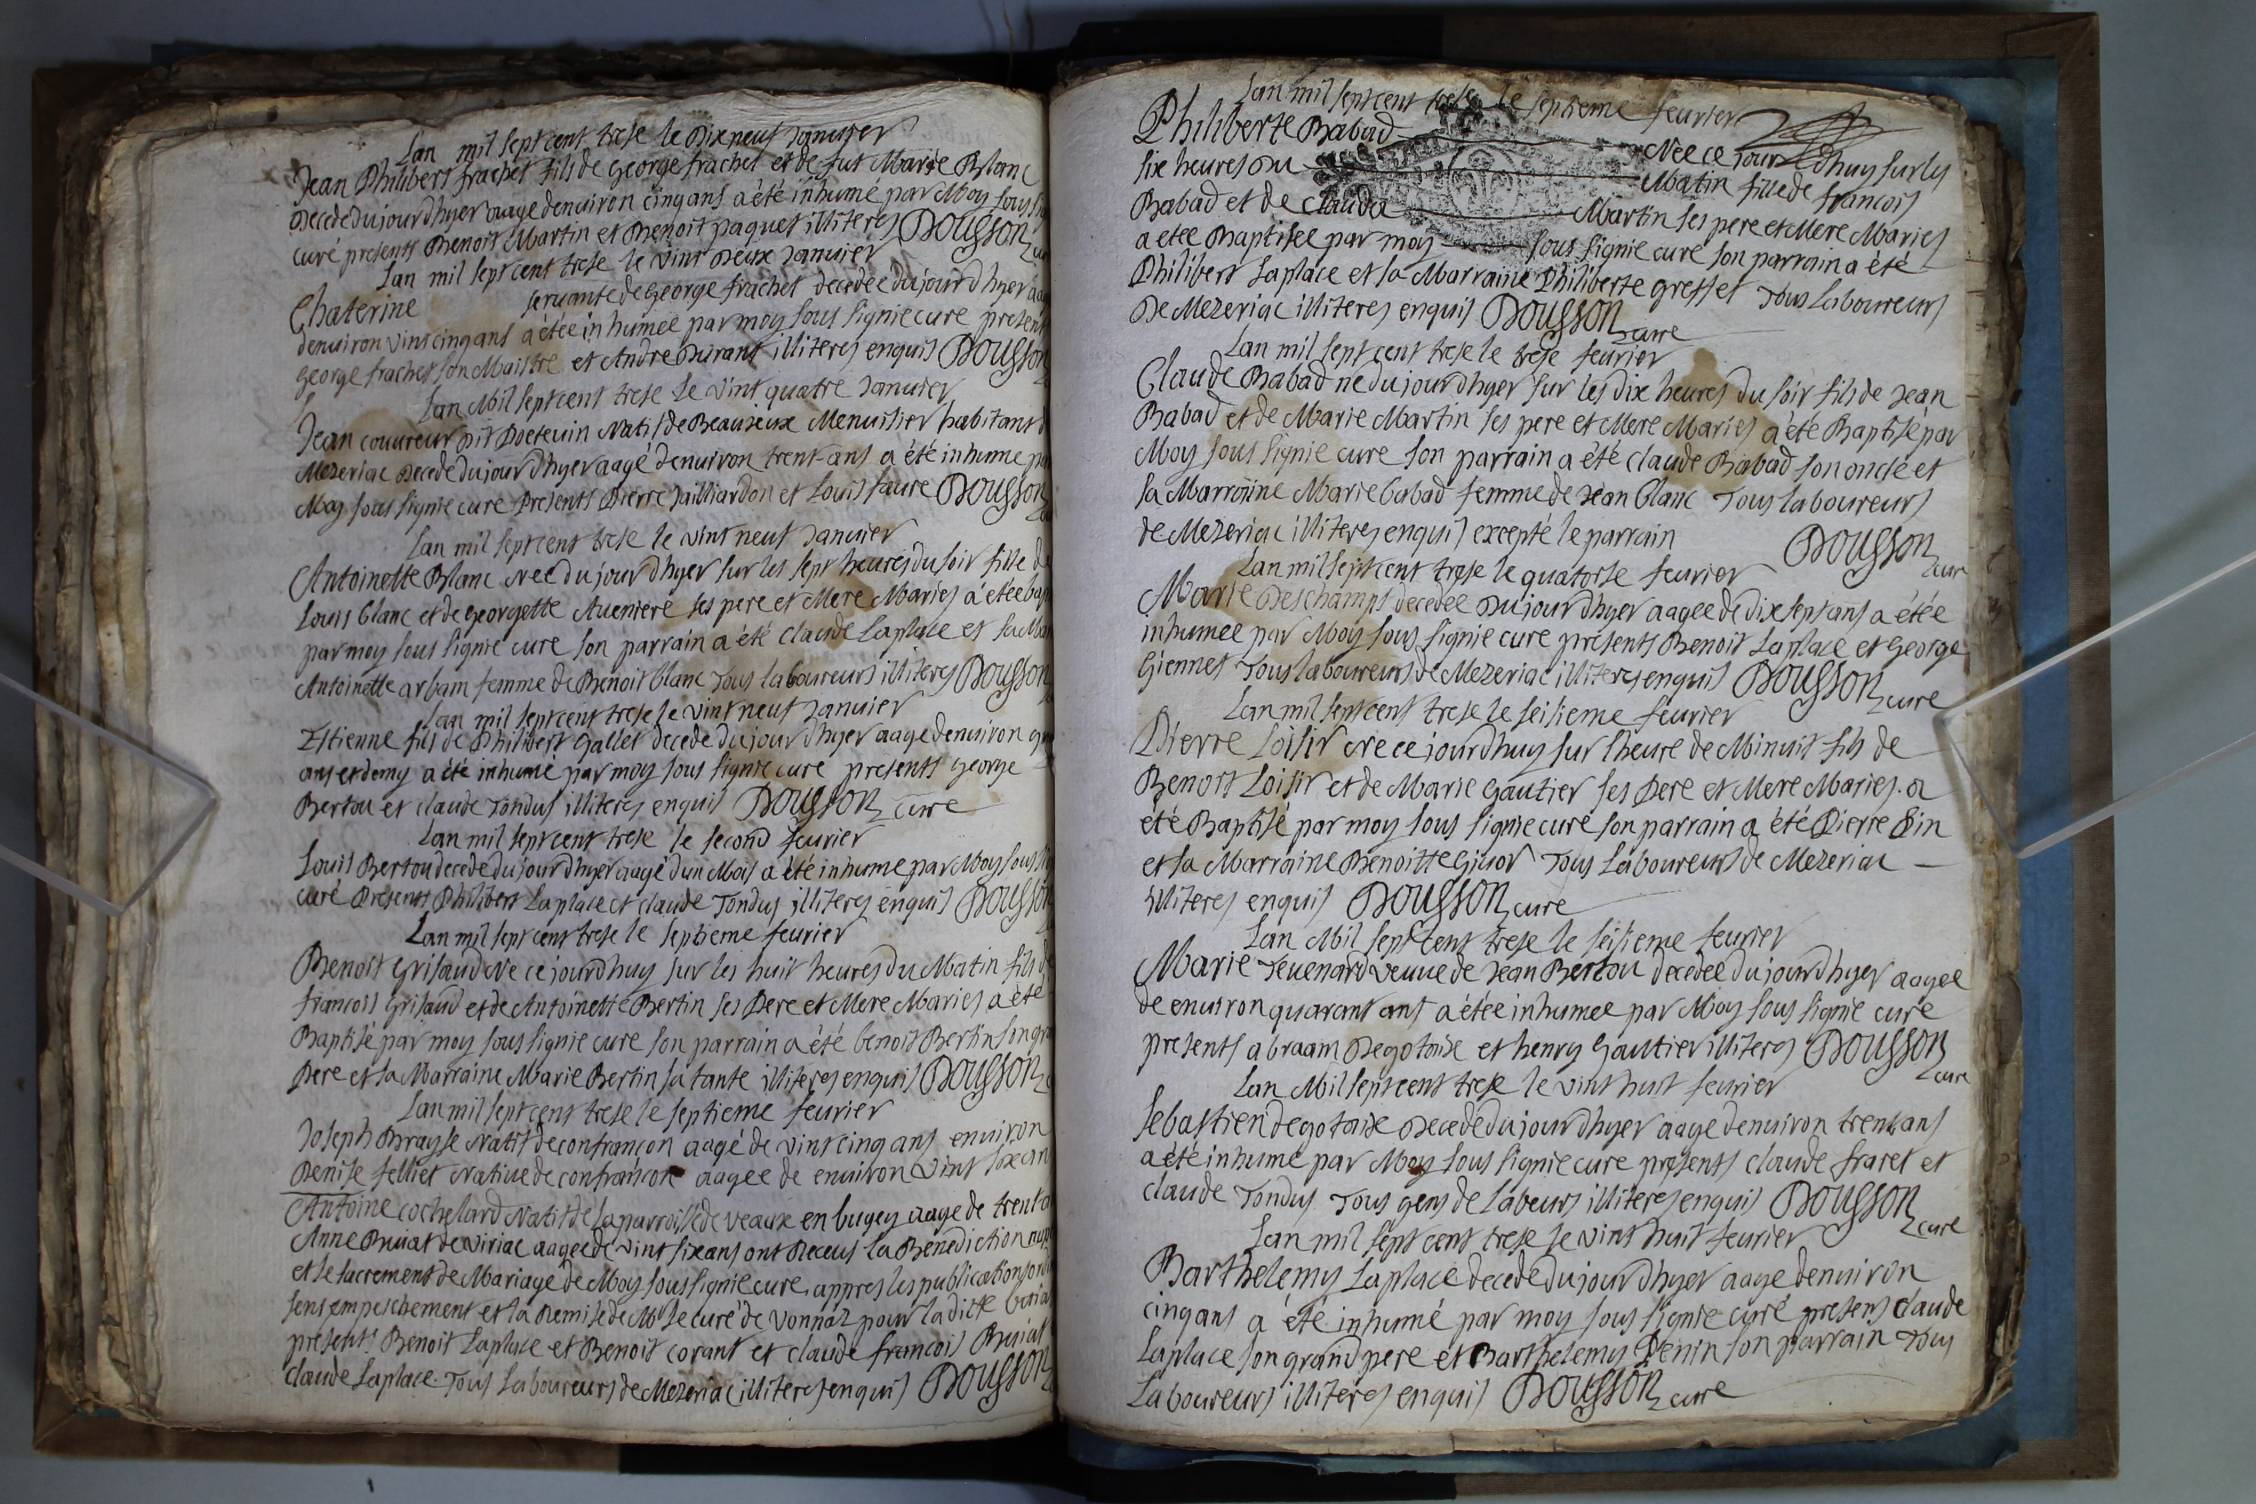 Lan mil sept cent trese le Dix neuf Janvier
Jean Philibert frachet fils de George frachet et de fut Marie Blanc
Decede du jour dhyer aage denuiron cinq ans a été inhumé par Moy sous
curé presents Benoit Martin et Benoit paquet illiteres Dousson
Lan mil sept cent trese le vint Deux Januier
Chaterine servante de George frachet decedee du jour dhyer
denuiron vint cinq ans a étée inhumee par moy sous signie cure present
George frachet son Maistre et Andre Durant illiteres enquis Dousson
Lan Mil sept cent trese Le vint quatre Januier
Jean couureur dit Poeteuin Natif de Beaujeux Menuisier habitant
Mezeriac Decede du jour dhyer aagé denuiron trent-ans a été inhume
Moy sous signie cure Presents Pierre Jailliardon et Louis faure Dousson
Lan mil sept cent trese le vint neuf Januier
Antoinette Blanc Nee du jour dhyer sur les sept heures du soir fille de
Louis Blanc et de Georgette Aueniere ses pere et Mere Maries a étée
par moy sous signie cure son parrain a été Claude Laplace et sa
Antoinette arbam femme de Benoit blanc Tous laboureurs illiteres Dousson
Lan mil sept cent trese le vint neuf Januier
Estienne fils de Philibert Gallet decede du jour dhyer aage denuiron
ans et demy a été inhumé par moy sous signie cure presents George
Bertou et claude Tondus illiteres enquis Dousson cure
Lan mil sept cent trese le second feurier
Louis Bertou decede du jour dhyer aagé dun Mois a été inhume par Moy sous
curé Presents Philibert Laplace et claude Tondus illiteres enquis Dousson
Lan mil sept cent trese le septieme feurier
Benoit Grisaud Ne ce jourdhuy sur les huit heures du Matin fils de
francois Grisaud et de Antoinette Bertin ses Pere et Mere Maries a été
Baptisé par moy sous signie cure son parrain a été benoit Bertin
Pere et sa Marraine Marie Bertin sa tante illiteres enquis Dousson
Lan mil sept cent trese le septieme feurier
Joseph Braysse Natif de confrançon aagé de vint cinq ans enuiron
Denise felliet Natiue de confrançon aagee de enuiron vint
Antoine cochelard Natif de la parroisse de veaux en bugey aage de
Anne Buiat de viriac aagee de vint six ans ont Receus la Benediction
et le sacrement de Mariage de Moy sous signie cure, appres les publications
sens empeschement et la Remise de Mr le curé de vonnaz pour la ditte
présents Benoit Laplace et Benoit corant et claude francois Buiat
claude Laplace. Tous Laboureurs de Mezeriac illiteres enquis Dousson
Lan mil sept cent trese le septieme feurier
Philiberte Babad Nee ce jour dhuy sur les
six heures du Matin fille de francois
Babad et de Clauda Martin ses pere et Mere Maries
a etee Baptisee par moy sous signie cure son parrain a été
Philibert Laplace et sa Marraine Philiberte greffet Tous Laboureurs
De Mezeriac illiteres enquis Dousson cure
Lan mil sept cent trese le trese feurier
Claude Babad ne du jour dhyer sur les dix heures du soir fils de Jean
Babad et de Marie Martin ses pere et Mere Maries a été Baptisé par
Moy sous signie cure son parrain a été claude Babad son oncle et
sa Marraine Marie babad femme de Jean Blanc Tous laboureurs
de Mezeriac illiteres enquis excepté le parrain Dousson cure
Lan mil sept cent trese le quatorse feurier
Marie Deschamps decedee Du jour dhyer aagee de dix sept ans a étée
inhumee par Moy sous signie cure présents Benoit Laplace et George
Giennet Tous laboureurs de Mezeriac illiteres enquis Dousson cure
Lan mil sept cent trese le seisieme feurier
Pierre Loisir Ne ce jourdhuy sur lheure de Minuit fils de
Benoit Loisir et de Marie Gautier ses Pere et Mere Maries. a
été Baptisé par moy sous signie curé son parrain a été Pierre
et sa Marraine Benoitte Giuor Tous Laboureurs de Mezeriac
illiteres enquis Dousson cure
Lan Mil sept cent trese le seisieme feurier
Marie Teuenard Veuue de Jean Bertou decedee du jour dhyer aagee
de enuiron quarant ans a étée inhumee par Moy sous signie cure
presents abraam Degotaise et henry Gautier illiteres Dousson cure
Lan Mil sept cent trese le vint huit feurier
Sebastien degotaise Decede du jour dhyer aage denuiron trent ans
a été inhume par Moy sous signie cure présents claude fraret et
claude Tondus Tous gens de Labeurs illiteres enquis Dousson cure
Lan mil sept cent trese le vint huit feurier
Barthelemy Laplace decede du jour dhyer aage denuiron
cinq ans a été inhumé par moy sous signie curé presens claude
Laplace son grand pere et Barthelemy Penin son parrain Tous
Laboureurs illiteres enquis Dousson cure